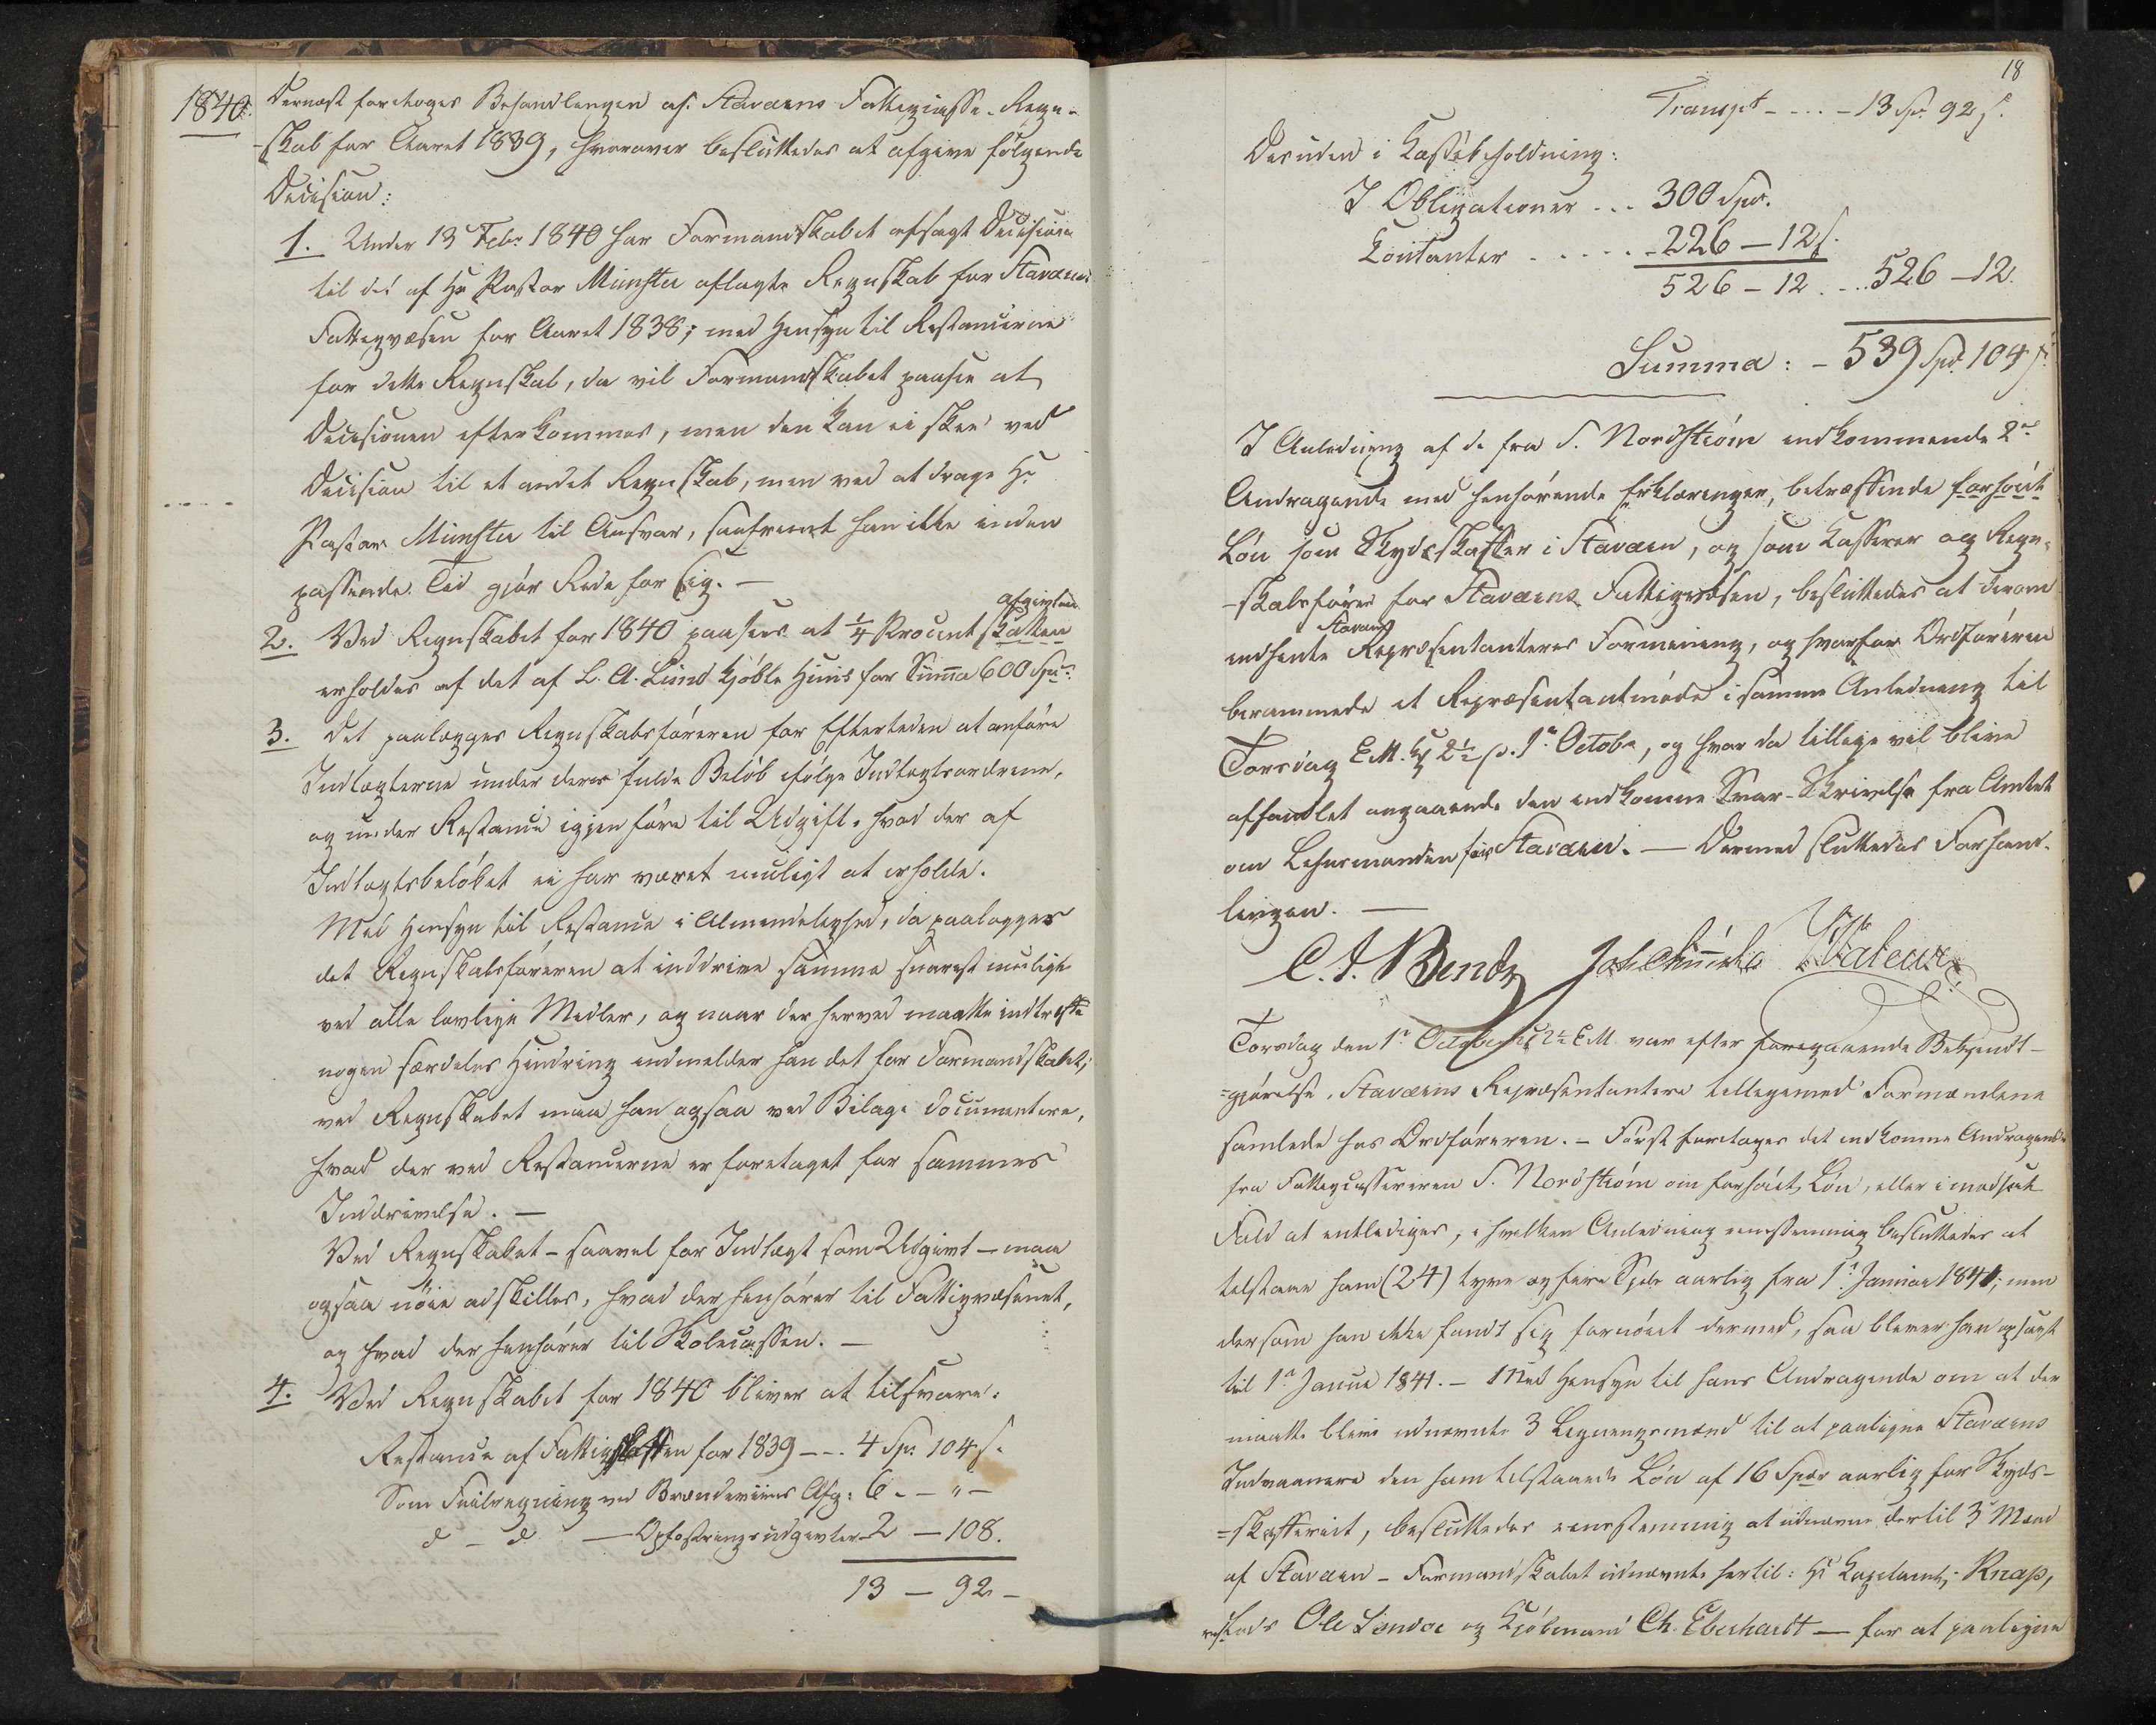 1840.
Dernæst foretoges Behandlingen af Staværns Fattigcasse-Regn-
-skab for Aaret 1839, hvorover besluttedes at afgive følgende
Decision:
1. Under 13 Febr 1840 har Formandskabet afsagt Decision
til det af Hr Pastor Münster aflagte Regnskab for Staværns
Fattigvæsen for Aaret 1838; med Hensyn til Restancerne
for dette Regnskab, da vil Formandskabet paasee at
Decisionen efterkommes, men den kan ei skee ved
Decision til et andet Regnskab, men ved at drage Hr
Pastor Münster til Ansvar, saafremt han ikke inden
passende Tid gjør Rede for sig. —
2. Ved Regnskabet for 1840 paasees at 1/4 Procent skatten
afgivten
erholdes af det af L. A. Lund kjøbte Huus for Suma 600 Spd.
3. Det paalægges Regnskabsføreren for Eftertiden at anføre
Indtægterne under deres fulde Beløb ifølge Indtægtsordrene,
og under Restance igjen føre til Udgift, hvad der af
Indtægtsbeløbet ei har været muligt at erholde.
Med Hensyn til Restance i Almindelighed, da paalægges
det Regnskabsføreren at inddrive samme snarest muligt
ved alle lovlige Midler, og naar der herved maatte indtræffe
nogen særdeles Hindring indmelder han det for Formandskabet;
ved Regnskabet maa han ogsaa ved Bilage documentere,
hvad der ved Restancerne er foretaget for sammes
Inddrivelse. —
Ved Regnskabet – saavel for Indtægt som Udgivt – maa
ogsaa nøie adskilles, hvad der henhører til Fattigvæsenet,
og hvad der henhører til Skolecassen. —
4. Ved Regnskabet for 1840 bliver at tilsvare:
Restance af Fattigskatten for 1839 --- 4 Sp. 104 s.
Som Feilregning ved Brændeviins Afg: 6 - " -
d - d — Opfostringsudgivter - 2 - 108.
13 — 92 -
18
Transpt - ... - 13 Sp. 92 s.
Desuden i Kassebeholdning:
I Obligationer ... 300 Spd.
Contanter ..... 226 — 12 s.
526 - 12 ... 526 - 12.
Summa: - 539 Spd. 104 s.
I Anledning af de fra S. Nordstrøm indkommende 2de
Andragende med henhørende Erklæringer, betræffende forhøiet
Løn som Skydsskaffer i Staværn, og som Kasserer og Regn-
-skabsfører for Staværns Fattigvæsen, besluttedes at derom
Staværns
indhente Repræsentanternes Formening, og hvorfor Ordføreren
berammede et Repræsentantmøde i samme Anledning til
Torsdag E.M. Kl 2½ p. 1ste Octobr, og hvor da tillige vil blive
afhandlet angaaende den indkomne Svar-Skrivelse fra Amtet
om Lehnsmanden for Staværn. — Dermed sluttedes Forhand-
lingen. —
C. F. Bendz
Torsdag den 1ste October Kl 2½ E.M. var efter foregaaende Bekjendt-
=gjørelse, Staværns Repræsentantere tilligemed Formændene
samlede hos Ordføreren. – Først foretoges det indkomne Andragende
fra Fattigcassereren S. Nordstrøm om forhøiet Løn, eller i modsat
Fald at entlediges, i hvilken Anledning eenstemmig besluttedes at
tilstaae ham (24) tyve og fire Spdr aarlig fra 1ste Januar 1841; men
dersom han ikke fandt sig fornøiet dermed, saa bliver han opsagt
til 1ste Januar 1841. – Med Hensyn til hans Andragende om at der
maatte blive udnævnte 3 Ligningsmænd til at paaligne Staværns
Indvaanere den ham tilstaaede Løn af 16 Spdr aarlig for Skyds-
=skafferiet, besluttedes eenstemmig at udnævne dertil 3 Mænd
af Staværn – Formandskabet udnævnte hertil: Hr Knap,
Ole og Kjøbmand Ch. Eberhardt — for at paaligne